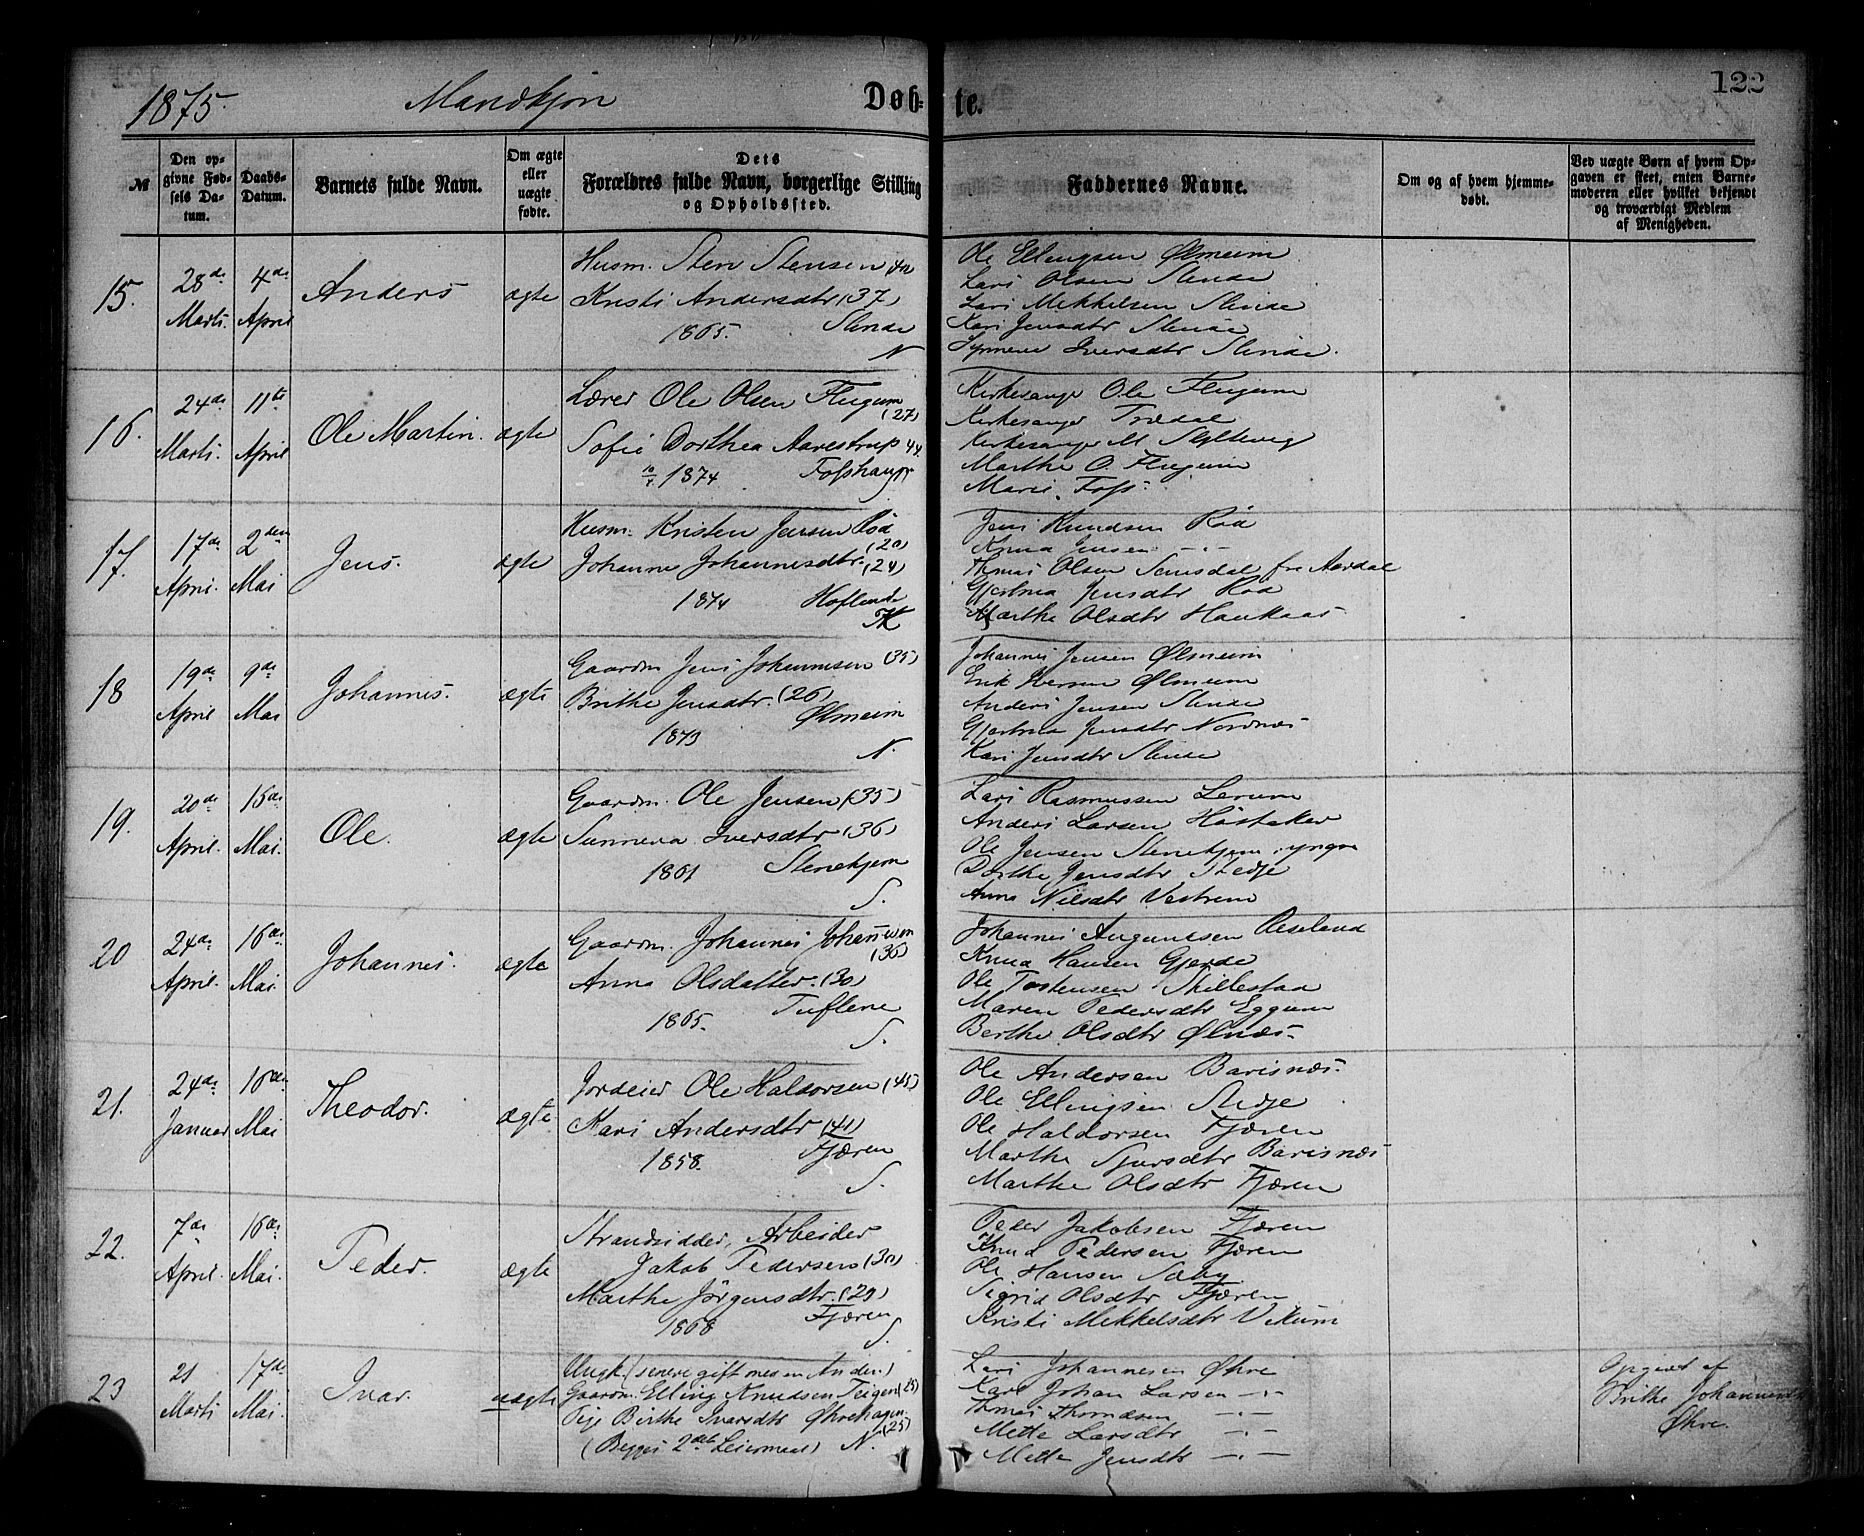 1875. Mandkjøn Døb- te. 122
№
Den op-
givne Fød-
sels Da-
tum.
Daabs-
Datum.
Barnets fulde Navn.
Om ægte
eller
uægte
fødte.
Dets
Forældres fulde Navn, borgerlige Stilling
og Opholdssted.
Faddernes Navne.
Om og af hvem hjemme-
døbt.
Ved uægte Børn af hvem Op-
gaven er skeet, enten Barne-
moderen eller hvilket bekjendt
og troværdigt Medlem
af Menigheden.
15.
28de
Marts.
4de
April
Anders
ægte
Husm. Sten Stensen
Kristi Andersdtr (37)
1865. Slinde
N
Ole Ellingsen Ølmeim
Lars Olsen Slinde
Lars Mikkelsen Slinde
Kari Jensdtr Slinde
Synneve Iversdtr Slinde.
16.
24de
Marts.
11te
April
Ole Martin.
ægte
Lærer Ole Olsen Flugum
(27)
Sofie Dorthea Aarestrup 44.
1874 Fosshaug
Kirkesanger Ole Flugum
Kirkesanger Trædal
Kirkesanger M Slyttevig
Marthe O. Flugum
Marie Foss.
17.
17de
April.
2den
Mai
Jens.
ægte
Husm. Kristen Jensen Rød
(20)
Johanne Johannesdtr. (24)
1874 Hoflund
K
Jens Knudsen Rød
Knud Jensen -"-
Thomas Olsen Semsdal fra Aardal
Gjertrud Jensdtr Rød
Marthe Olsdtr Haukaas
18
19de
April
9de
Mai
Johannes.
ægte
Gaardm Jens Johannesen (35)
Brithe Jensdtr. (26)
Ølmeim
1873
N.
Johannes Jensen Ølmeim
Erik Iversen Ølmeim
Anders Jensen Slinde
Gjertrud Jensdtr Nordnæs
Kari Jensdtr Slinde
19.
20de
April.
15de
Mai.
Ole.
ægte
Gaardm. Ole Jensen (35)
Sunneva Iversdtr (36)
1861 Stenehjem
S.
Lars Rasmussen Lerum
Anders Larsen Haastaker
Ole Jensen Stenehjem, yngre
Dorthe Jensdtr Stedje
Anna Nilsdtr Vestrem
20
24de
April.
16de
Mai.
Johannes.
ægte
Gaardm. Johannes Johannesen
(36)
Anna Olsdatter. (30)
1865. Tuftene
S.
Johannes Amundsen Reseland
Knud Hansen Gjerde
Ole Torstensen Skillestad
Maren Pedersdtr Eggum
Berthe Olsdtr Ølnæs-
21.
24de
Januar
16de
Mai
Theodor.
ægte.
Jordeier Ole Haldorsen (45)
Kari Andersdtr (41)
1858. Fjæren
S.
Ole Andersen Barsnæs.
Ole Ellingsen Stedje
Ole Haldorsen Fjæren
Marthe Sjursdtr Barsnæs
Marthe Olsdtr Fjæren
22.
7de
April.
16de
Mai.
Peder.
ægte
Strandsidder, Arbeider
Jakob Pedersen (30)
Marthe Jørgensdtr. (29)
1868 Fjæren
S.
Peder Jakobsen Fjæren
Knud Pedersen Fjæren
Ole Hansen Sæby
Sigrid Olsdtr Fjæren
Kristi Mikkelsdtr Vikum
23
21
Marts
17de
Mai.
Ivar.
uægte
Ungk. (senere gift med en Anden)
Gaardm. Elling Knudsen Teigen (25)
Pige Birthe Ivarsdtr Øhrehagen.
(25)
(Begges 2det Leiermaal) N.
Lars Johannesen Øhre
Karl Johan Larsen -"-
Thomas Thomæsen -"-
Mette Larsdtr -"-
Mette Jensdtr -"-
Opgivet af
Brithe Johannesdtr
Øhre